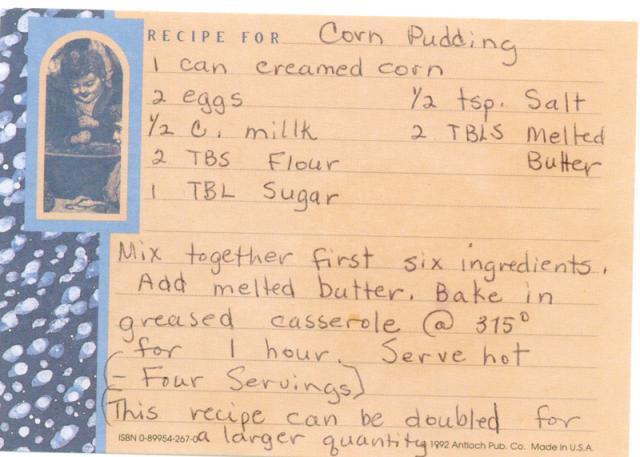 RECIPE FOR Corn Pudding
1 can creamed corn
2 eggs 1/2 tsp. Salt
1/2 C. millk 2 TBLS Melted
2 TBS Flour Butter
1 TBL Sugar
Mix together first six ingredients.
Add melted butter. Bake in
greased casserole @ 315°
for 1 hour. Serve hot
(- Four Servings)
(This recipe can be doubled for
a larger quantity
ISBN 0-89954-267-0 1992 Antioch Pub. Co. Made in U.S.A.